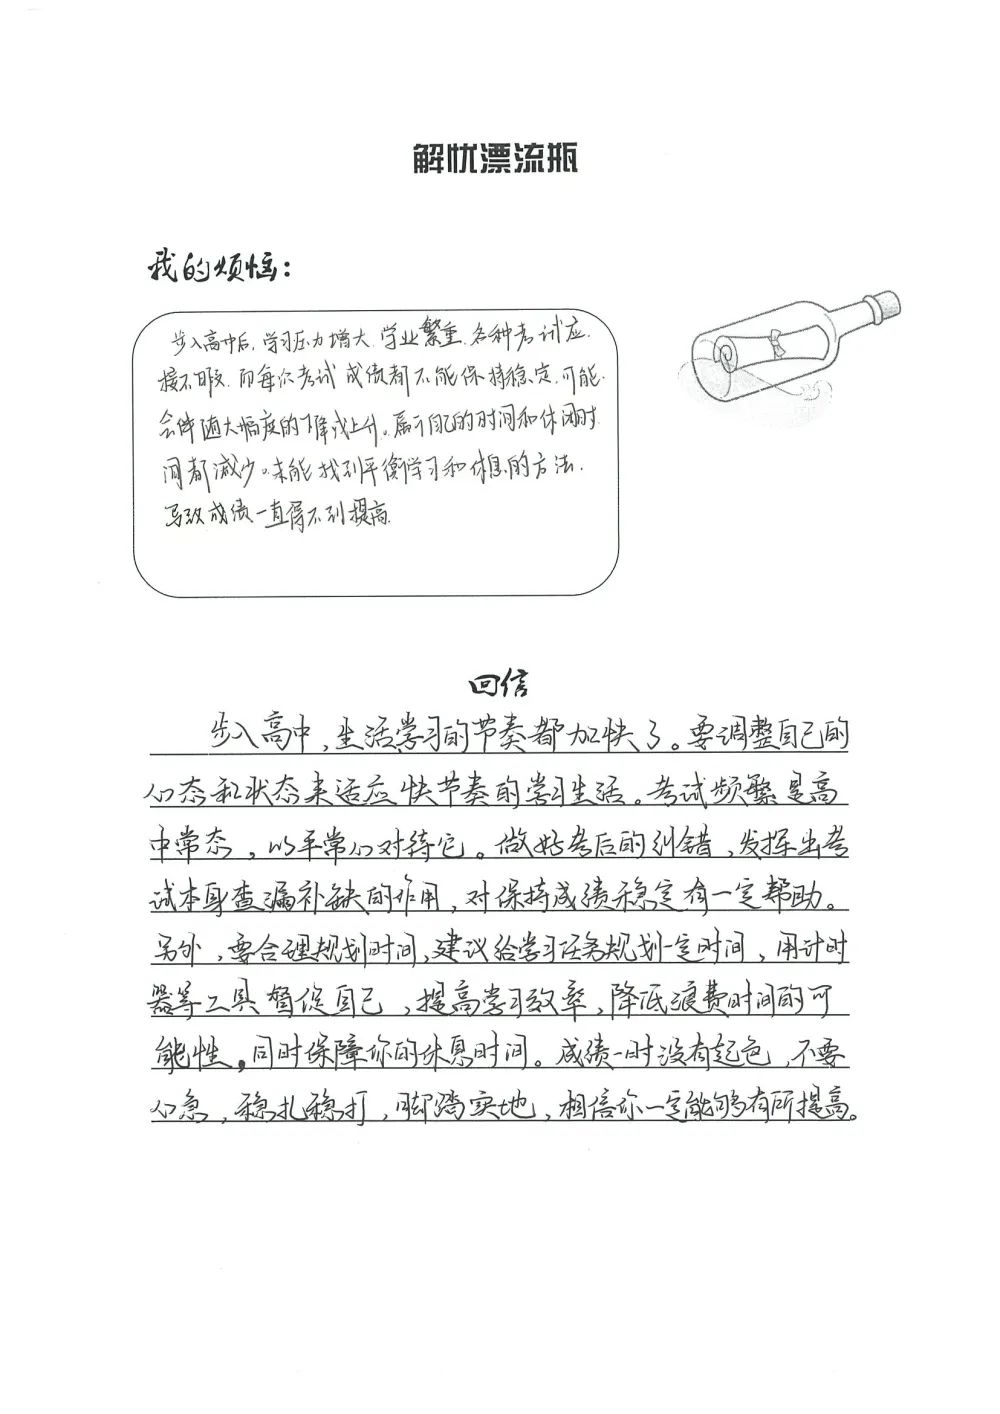 解忧漂流瓶
我的烦恼：
步入高中后，学习压力增大，学业繁重，各种考试应
接不暇，而每次考试成绩都不能保持稳定，可能
会伴随大幅度的下降或上升。属于自己的时间和休闲时
间都减少。未能找到平衡学习和休息的方法，
导致成绩一直得不到提高。
回信
步入高中，生活学习的节奏都加快了。要调整自己的
心态和状态来适应快节奏的学习生活。考试频繁是高
中常态，以平常心对待它。做好考后的纠错，发挥出考
试本身查漏补缺的作用，对保持成绩稳定有一定帮助。
另外，要合理规划时间，建议给学习任务规划一定时间，用计时
器等工具督促自己，提高学习效率，降低浪费时间的可
能性，同时保障你的休息时间。成绩一时没有起色，不要
心急，稳扎稳打，脚踏实地，相信你一定能够有所提高。